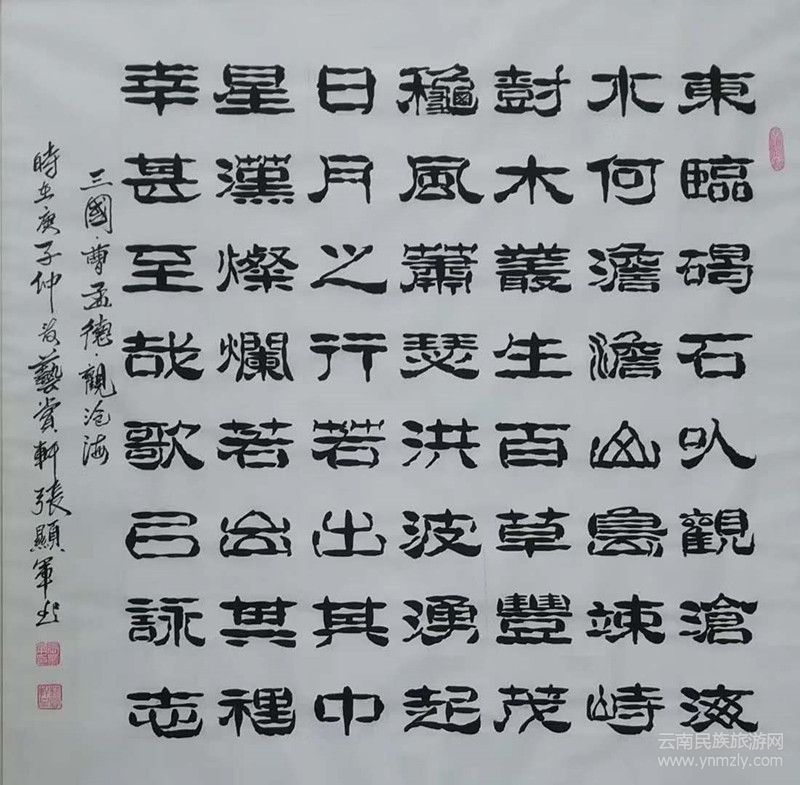 東臨碣石以觀滄海
水何澹澹山島竦峙
尌木叢生百草豐茂
龝風蕭瑟洪波湧起
日月之行若出其中
星漢燦爛若出其裡
幸甚至哉歌已詠志
三國·曹孟德·觀滄海
時在庚子仲
藝賞軒張顯軍書
云南民族旅游网
www.ynmzly.com